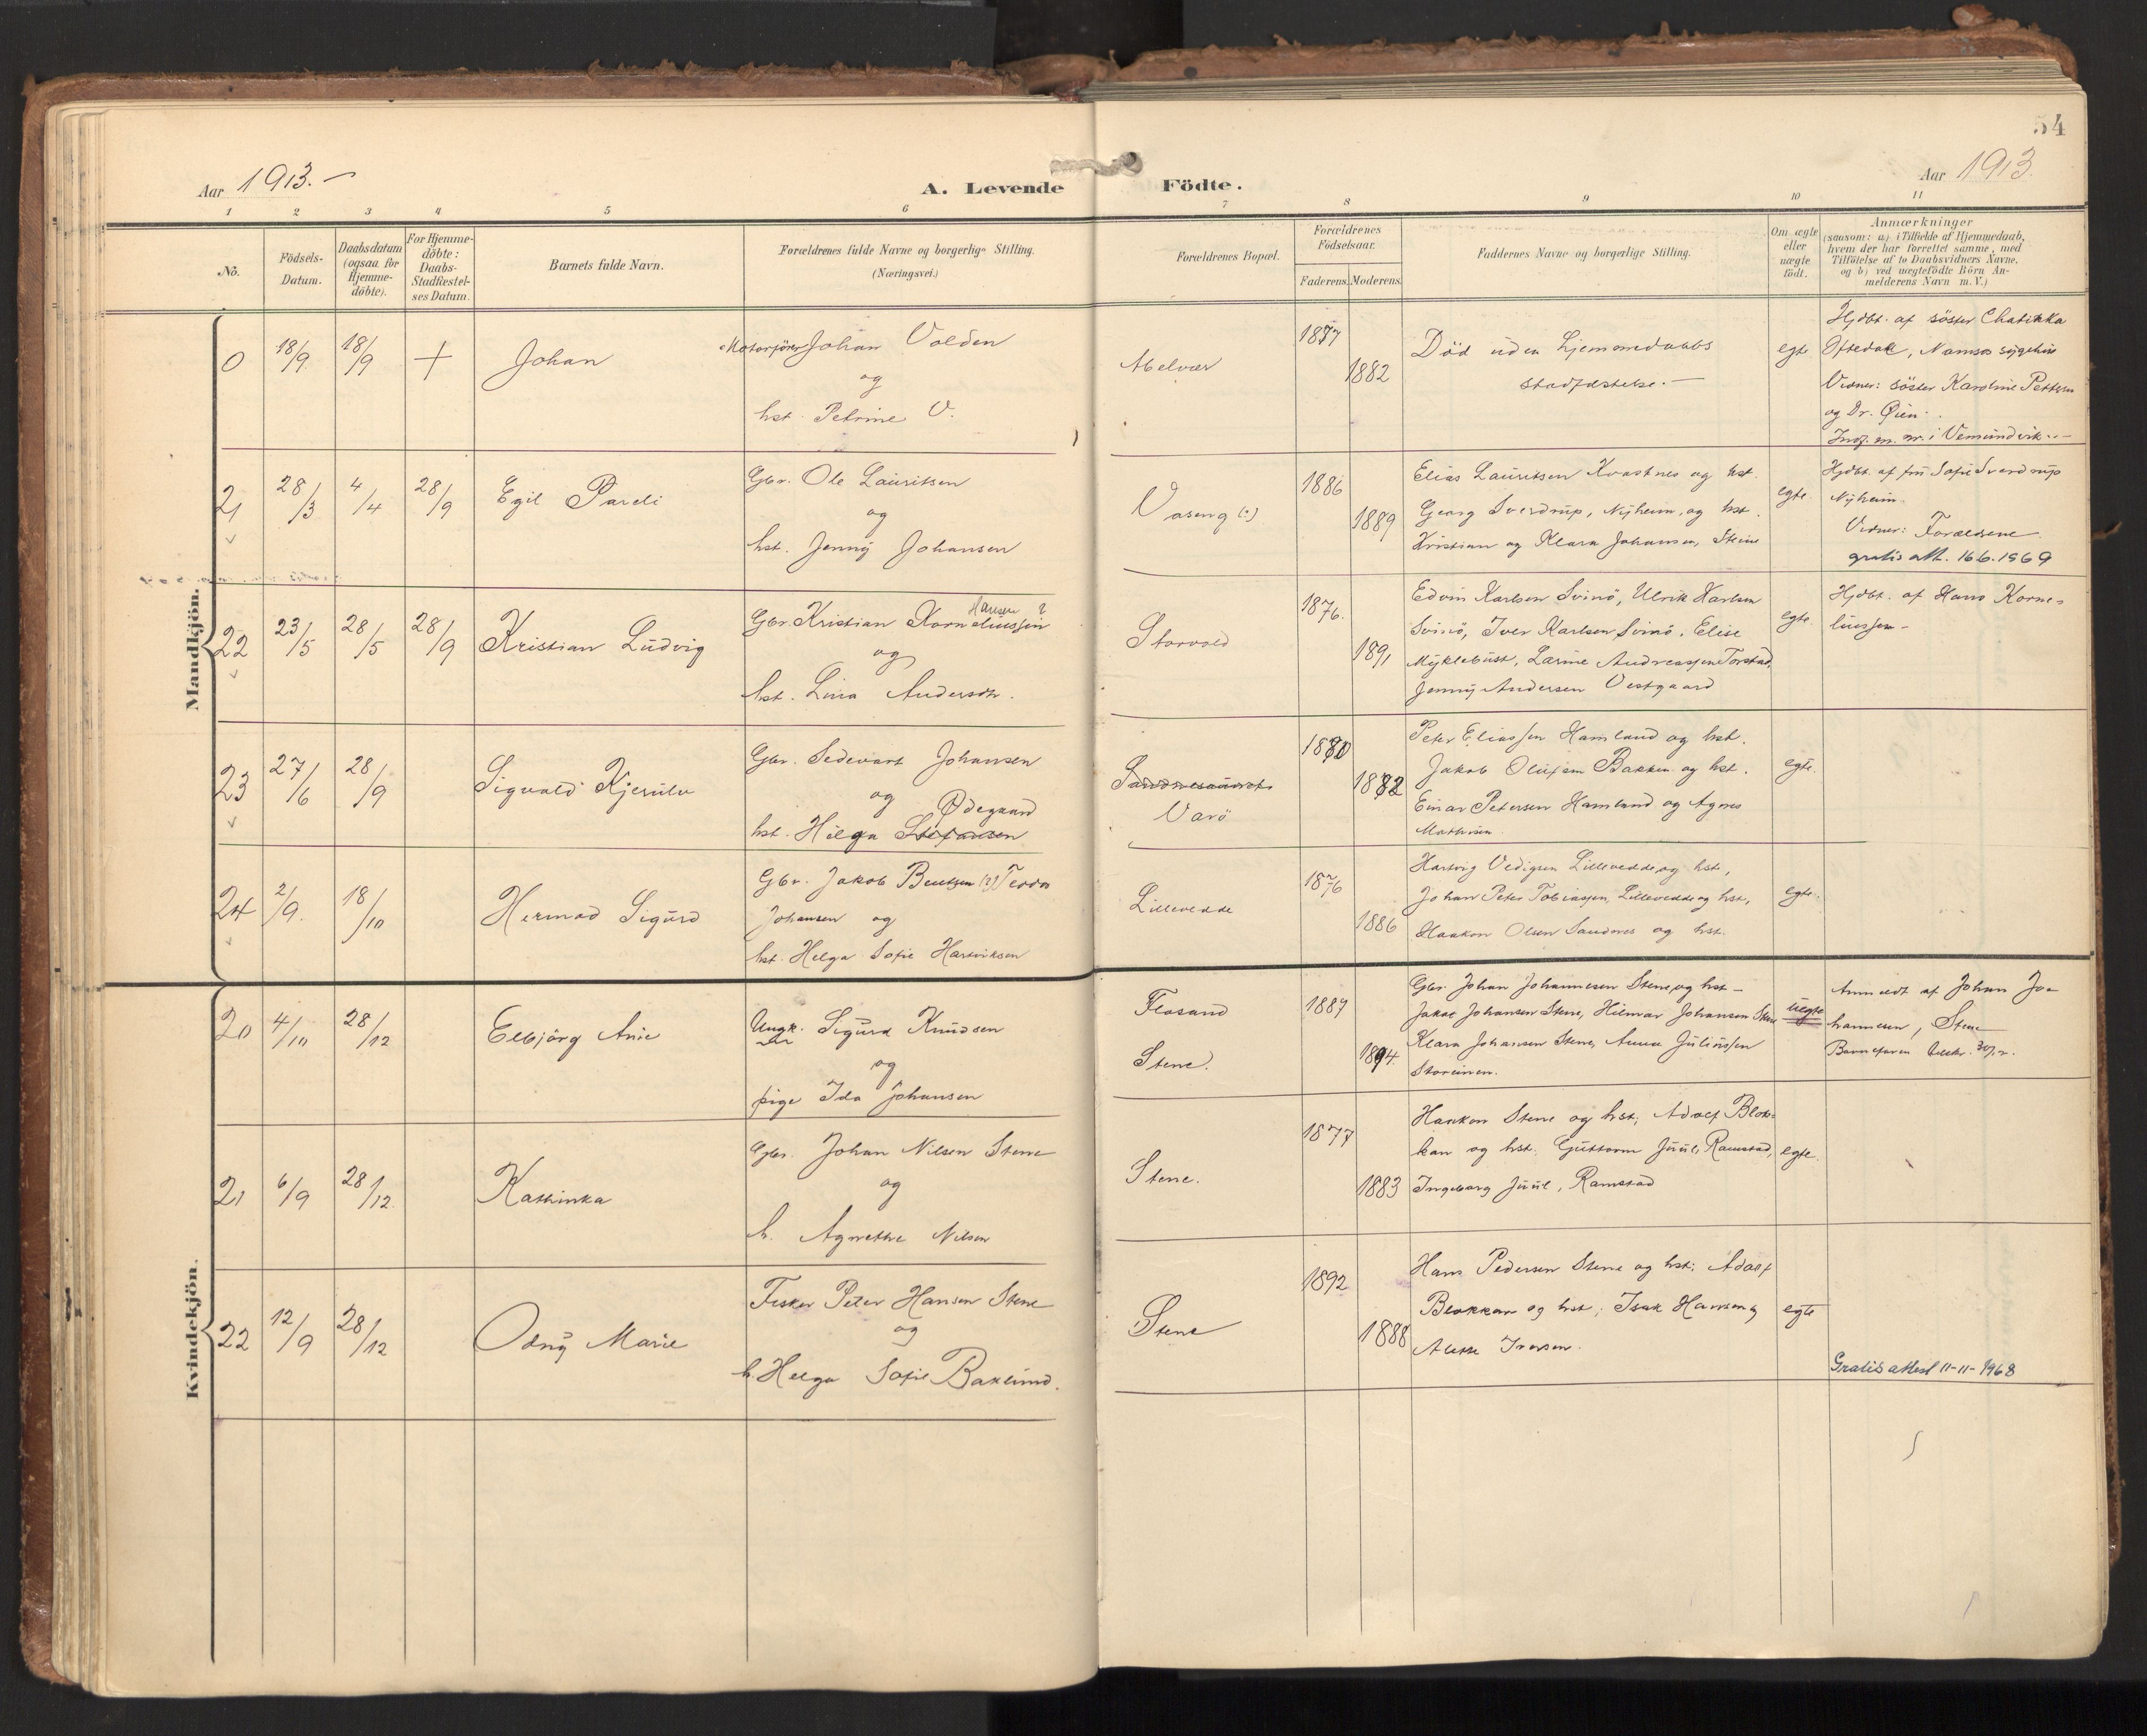 54
Aar 1913.
A. Levende Födte.
Aar 1913.
1 2 3 4 5 6 7 8 9 10 11
No.
Födsels-Datum.
Daabsdatum (ogsaa for Hjemme-döbte).
For Hjemme-döbte: Daabs-Stadfestel-ses Datum.
Barnets fulde Navn.
Forældrenes fulde Navne og borgerlige Stilling.
(Næringsvei.)
Forældrenes Bopæl.
Forældrenes Födselsaar.
Faderens. Moderens.
Faddernes Navne og borgerlige Stilling.
Om ægte eller uægte födt.
Anmærkninger
(saasom: a) i Tilfælde af Hjemmedaab,
hvem der har forrettet samme, med
Tilföielse af to Daabsvidners Navne,
og b) ved uægtefödte Börn An-
melderens Navn m. V.)
Mandkjön.
0 18/9 18/9 + Johan
Motorfører Johan Volden
og
hst. Petrine V.
Abelvær
1877
1882
Död uden hjemmedaabs
stadfæstelse. —
egte
Hjdbt. af söster Chatinka
Oftedal, Namsos sygehus
Vidner: söster Karoline Pettersen
og Dr. Øien.
Indf. m. nr. i Vemundvik. —
21 28/3 4/4 28/9 Egil Pareli
Gbr. Ole Lauritsen
og
hst. Jenny Johansen
Vaseng (?)
1886
1889
Elias Lauritsen Kvastnes og hst.
Georg Sverdrup, Nyheim, og hst.
Kristian og Klara Johansen, Steine
egte.
Hjdbt. af fru Sofie Sverdrup
Nyheim.
Vidner: Forældrene.
gratis att. 16.6.1969
22 23/5 28/5 28/9 Kristian Ludvig
Hansen ?
Gbr. Kristian Korneliussen
og
hst. Lina Anderson.
Storvold
1876.
1891
Edvin Karlsen Svinö, Ulrik Karlsen
Svinö, Iver Karlsen Svinö, Elise
Myklebust, Larine Andreassen Torstad,
Jenny Andersen Vestgaard
egte.
Hjdbt. af Hans Korne-
liussen —
23 27/6 28/9 Sigvald Kjerulv
Gbr. Sedevart Johansen
og
Ødegaard
hst. Helga Stefansen
Varö
1880
1882
Peter Eliassen Hamland og hst.
Jakob Olufsen Bakken og hst.
Einar Petersen Hamland og Agnes
Mathisen
egte.
24 2/9. 18/10 Hermod Sigurd
Gbr. Jakob Bentzen (?) Teodor
Johansen og
hst. Helga Sofie Hartviksen
Lillevedde
1876
1886
Hartvig Vedigsen Lillevedde og hst,
Johan Peter Tobiassen, Lillevedde og hst,
Haakon Olsen Sandnes og hst.
egte.
Kvindekjön.
20 4/10 28/12 Elbjörg Anie
Ungk. Sigurd Knudsen
og
pige Ida Johansen
Flosand
Stene.
1887
1894.
Gbr. Johan Johannesen Stene, og hst —
Jakob Johansen Stene, Hilmar Johansen Stene
Klara Johansen Stene, Anna Juliussen
Storeinen.
uegte
Anmeldt af Johan Jo-
hannesen, Stene
21 6/9 28/12. Kathinka
Gbr. Johan Nilsen Stene
og
h. Agnethe Nilsen
Stene.
1877
1883
Haakon Stene og hst; Adolf Blok-
kan og hst. Guttorm Juul, Ramstad,
Ingeborg Juul, Ramstad
egte.
22 12/9 28/12 Odny Marie
Fisker Peter Hansen Stene
og
h. Helga Sofie Baklund.
Stene
1892
1888
Hans Pedersen Stene og hst; Adolf
Blokkan og hst; Isak Hansen og
Alette Iversen.
egte
Gratis attest 11-11-1968